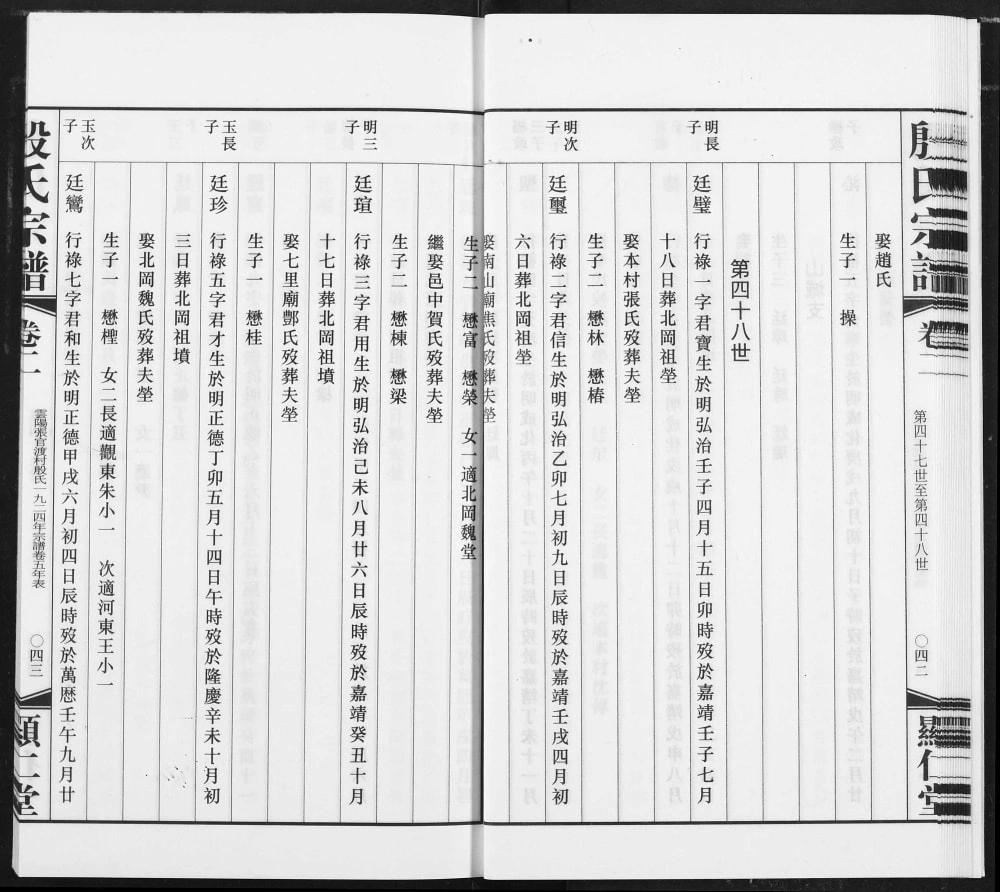 殷氏宗譜
卷二
第四十七世至第四十八世
〇四二
顯仁堂
娶趙氏
生子一 操
第四十八世
明長子
廷璧 行祿一字君寶生於明弘治壬子四月十五日卯時歿於嘉靖壬子七月
十八日葬北岡祖塋
娶本村張氏歿葬夫塋
生子二 懋林 懋椿
明次子
廷璽 行祿一字君信生於明弘治乙卯七月初九日辰時歿於嘉靖壬戌四月初
六日葬北岡祖塋
娶南山廟焦氏歿葬夫塋
生子二 懋富 懋榮 女一適北岡魏堂
繼娶邑中賀氏歿葬夫塋
生子二 懋棟 懋梁
明三子
廷瑄 行祿三字君用生於明弘治己未八月廿六日辰時歿於嘉靖癸丑十月
十七日葬北岡祖墳
娶七里廟鄷氏歿葬夫塋
生子一 懋桂
玉長子
廷珍 行祿五字君才生於明正德丁卯五月十四日午時歿於隆慶辛未十月初
三日葬北岡祖墳
娶北岡魏氏歿葬夫塋
生子一 懋檉 女二長適觀東朱小一 次適河東王小一
玉次子
廷鸞 行祿七字君和生於明正德甲戌六月初四日辰時歿於萬歷壬午九月廿
殷氏宗譜
卷二
雲陽張官渡村殷氏一九二四年宗譜卷五年表
〇四三
顯仁堂